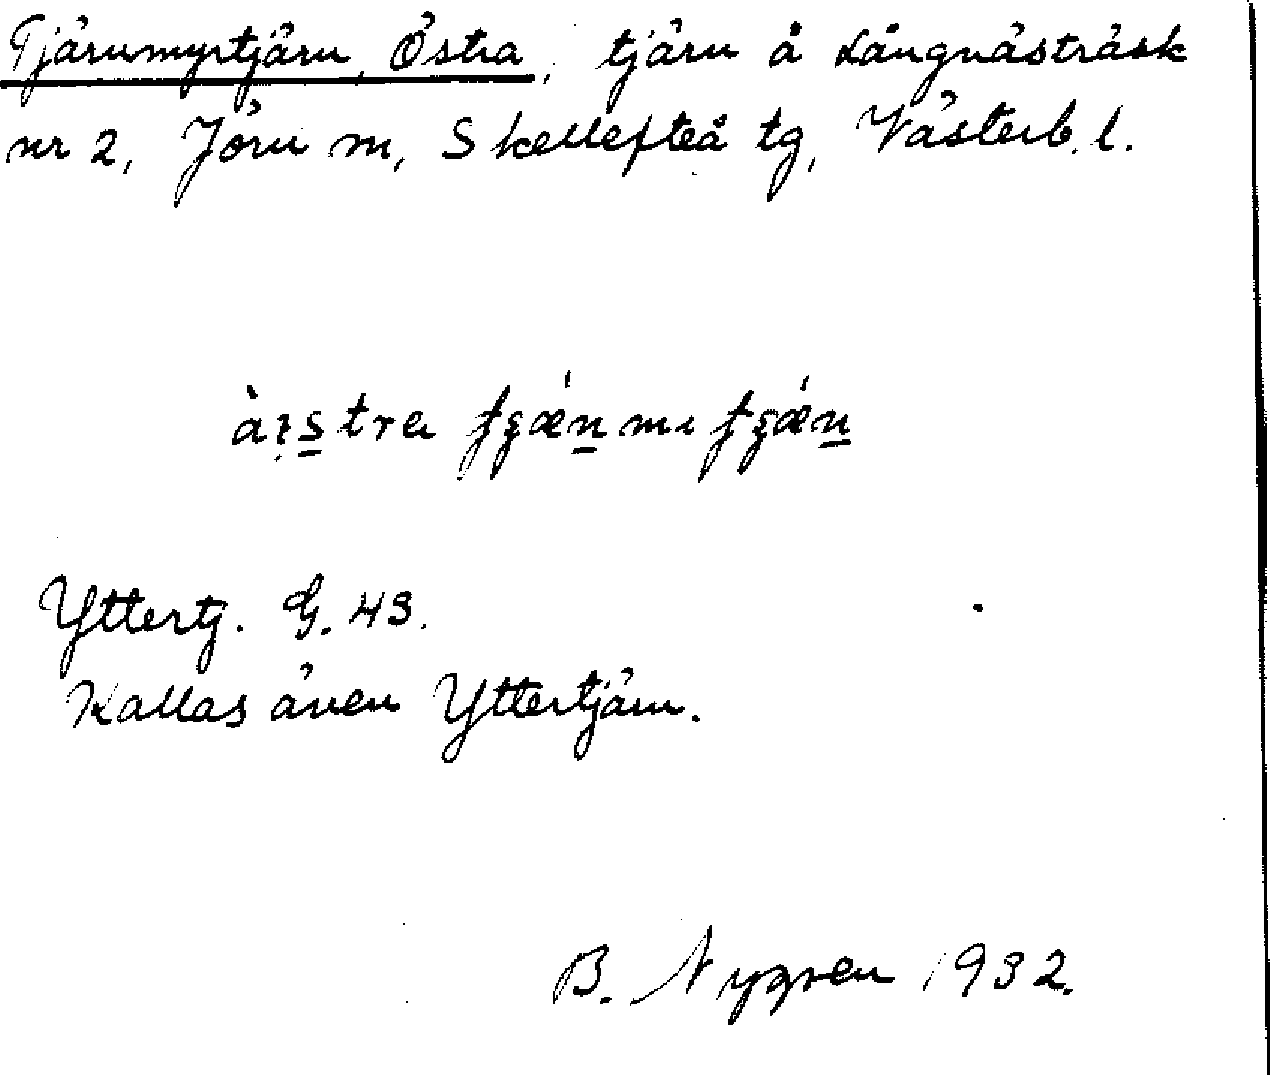 Tjärnmyrtjärn, Östra, tjärn å Långnästräsk
nr 2, Jörn sn, Skellefteå tg, Västerb. l.
Yttertj. G. 43.
Kallas även Yttertjärn.
B. Nygren 1932.